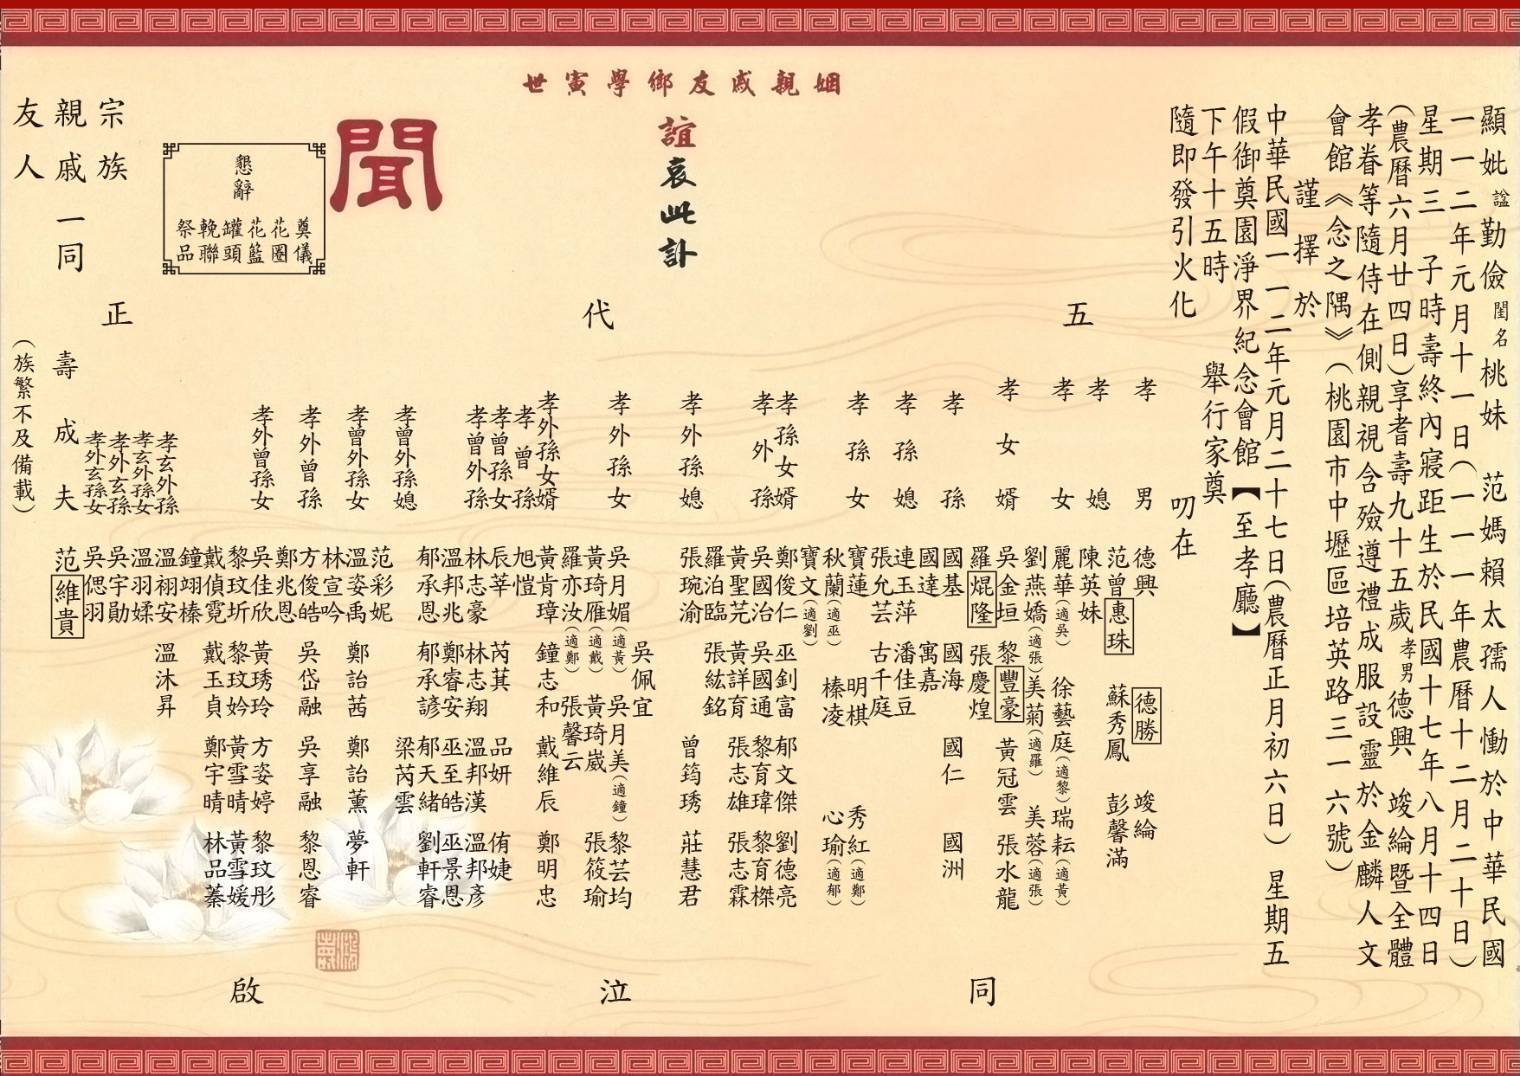 顯妣諡勤儉閨名桃妹 范媽賴太孺人慟於中華民國
一一二年元月十一日(一一一年農曆十二月二十日)
星期三 子時壽終內寢距生於民國十七年八月十四日
(農曆六月廿四日)享耆壽九十五歲孝男德興 竣綸暨全體
孝眷等隨侍在側親視含殮遵禮成服設靈於金麟人文
會館《念之隅》(桃園市中壢區培英路三一六號)
謹擇於
中華民國一一二年元月二十七日(農曆正月初六日) 星期五
假御奠園淨界紀念會館【至孝廳】
下午十五時 舉行家奠
隨即發引火化 叨在
姻親戚友鄉學寅世
誼哀此訃
聞
懇辭
奠儀
花圈
花籃
罐頭
輓聯
祭品
五代同泣啟
孝男 德興 德勝 竣綸
孝媳 范曾惠珠 蘇秀鳳 彭馨滿
陳英妹
孝女 麗華(適吳) 徐藝庭(適黎) 瑞耘(適黃)
劉燕嬌(適張) 美菊(適羅) 美蓉(適張)
孝女婿 吳金垣 黎豐豪 黃冠雲 張水龍
羅焜隆 張慶煌
孝孫 國基 國海 國仁 國洲
國達 寓嘉
孝孫媳 連玉萍 潘佳豆
張允芸 古千庭
孝孫女 寶蓮 明棋 秀紅(適鄭)
秋蘭(適巫) 榛凌 心瑜(適郁)
寶文(適劉)
孝孫女婿 鄭俊仁 巫釗富 郁文傑 劉德亮
孝外孫 吳國治 吳國通 黎育瑋 黎育榤
黃聖芫 黃詳育 張志雄 張志霖
羅泊臨 張紘銘
孝外孫媳 張琬渝 曾筠琇 莊慧君
孝外孫女 吳佩宜
吳月媚(適黃) 吳月美(適鐘) 黎芸均
黃琦雁(適戴) 黃琦崴 張筱瑜
羅亦汝(適鄭) 張馨云
孝外孫女婿 黃肯璋 鐘志和 戴維辰 鄭明忠
孝曾孫 旭愷
孝曾孫女 辰莘 芮萁 品妍 侑婕
孝曾外孫 林志豪 林志翔 溫邦漢 溫邦彥
溫邦兆 鄭睿安 巫至皓 巫景恩
郁承恩 郁承諺 郁天緒 劉軒睿
孝曾外孫媳 范彩妮 梁芮雲
孝曾外孫女 溫姿禹 鄭詒茜 鄭詒薰 夢軒
林宣吟
孝外曾孫 方俊皓 吳岱融 吳享融 黎恩睿
鄭兆恩
孝外曾孫女 吳佳欣 黃琇玲 方姿婷 黎玟彤
黎玟圻 黎玟妗 黃雪晴 黃雪媛
戴偵霓 戴玉貞 鄭宇晴 林品蓁
孝玄外孫 鐘翊榛
溫祤安 溫沐昇
孝玄外孫女 溫羽媃
孝外玄孫 吳宇勛
孝外玄孫女 吳偲羽
正
壽成夫 范維貴
(族繁不及備載)
宗族
親戚一同
友人